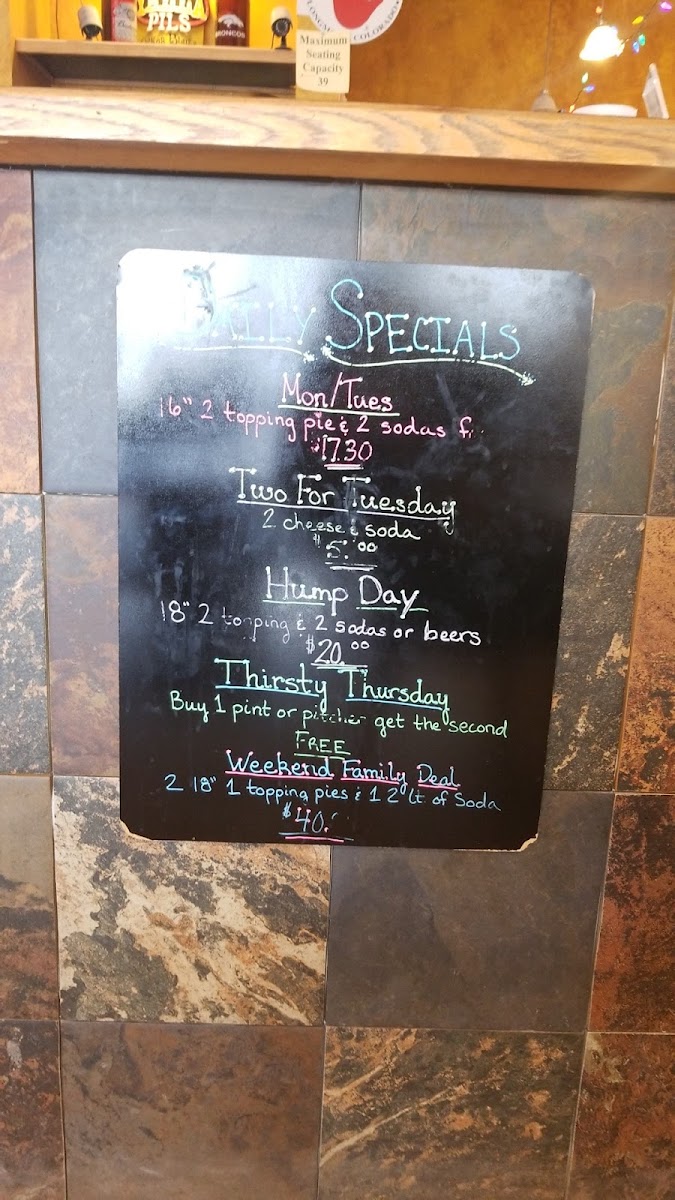 PILS
BRONCOS
LONGMONT COLORADO
Maximum
Seating
Capacity
39
DAILY SPECIALS
Mon/Tues
16" 2 topping pie & 2 sodas f
$17.30
Two For Tuesday
2 cheese & soda
$5.00
Hump Day
18" 2 topping & 2 sodas or beers
$20.00
Thirsty Thursday
Buy 1 pint or pitcher get the second
FREE
Weekend Family Deal
2 18" 1 topping pies & 1 2 lt. of Soda
$40.